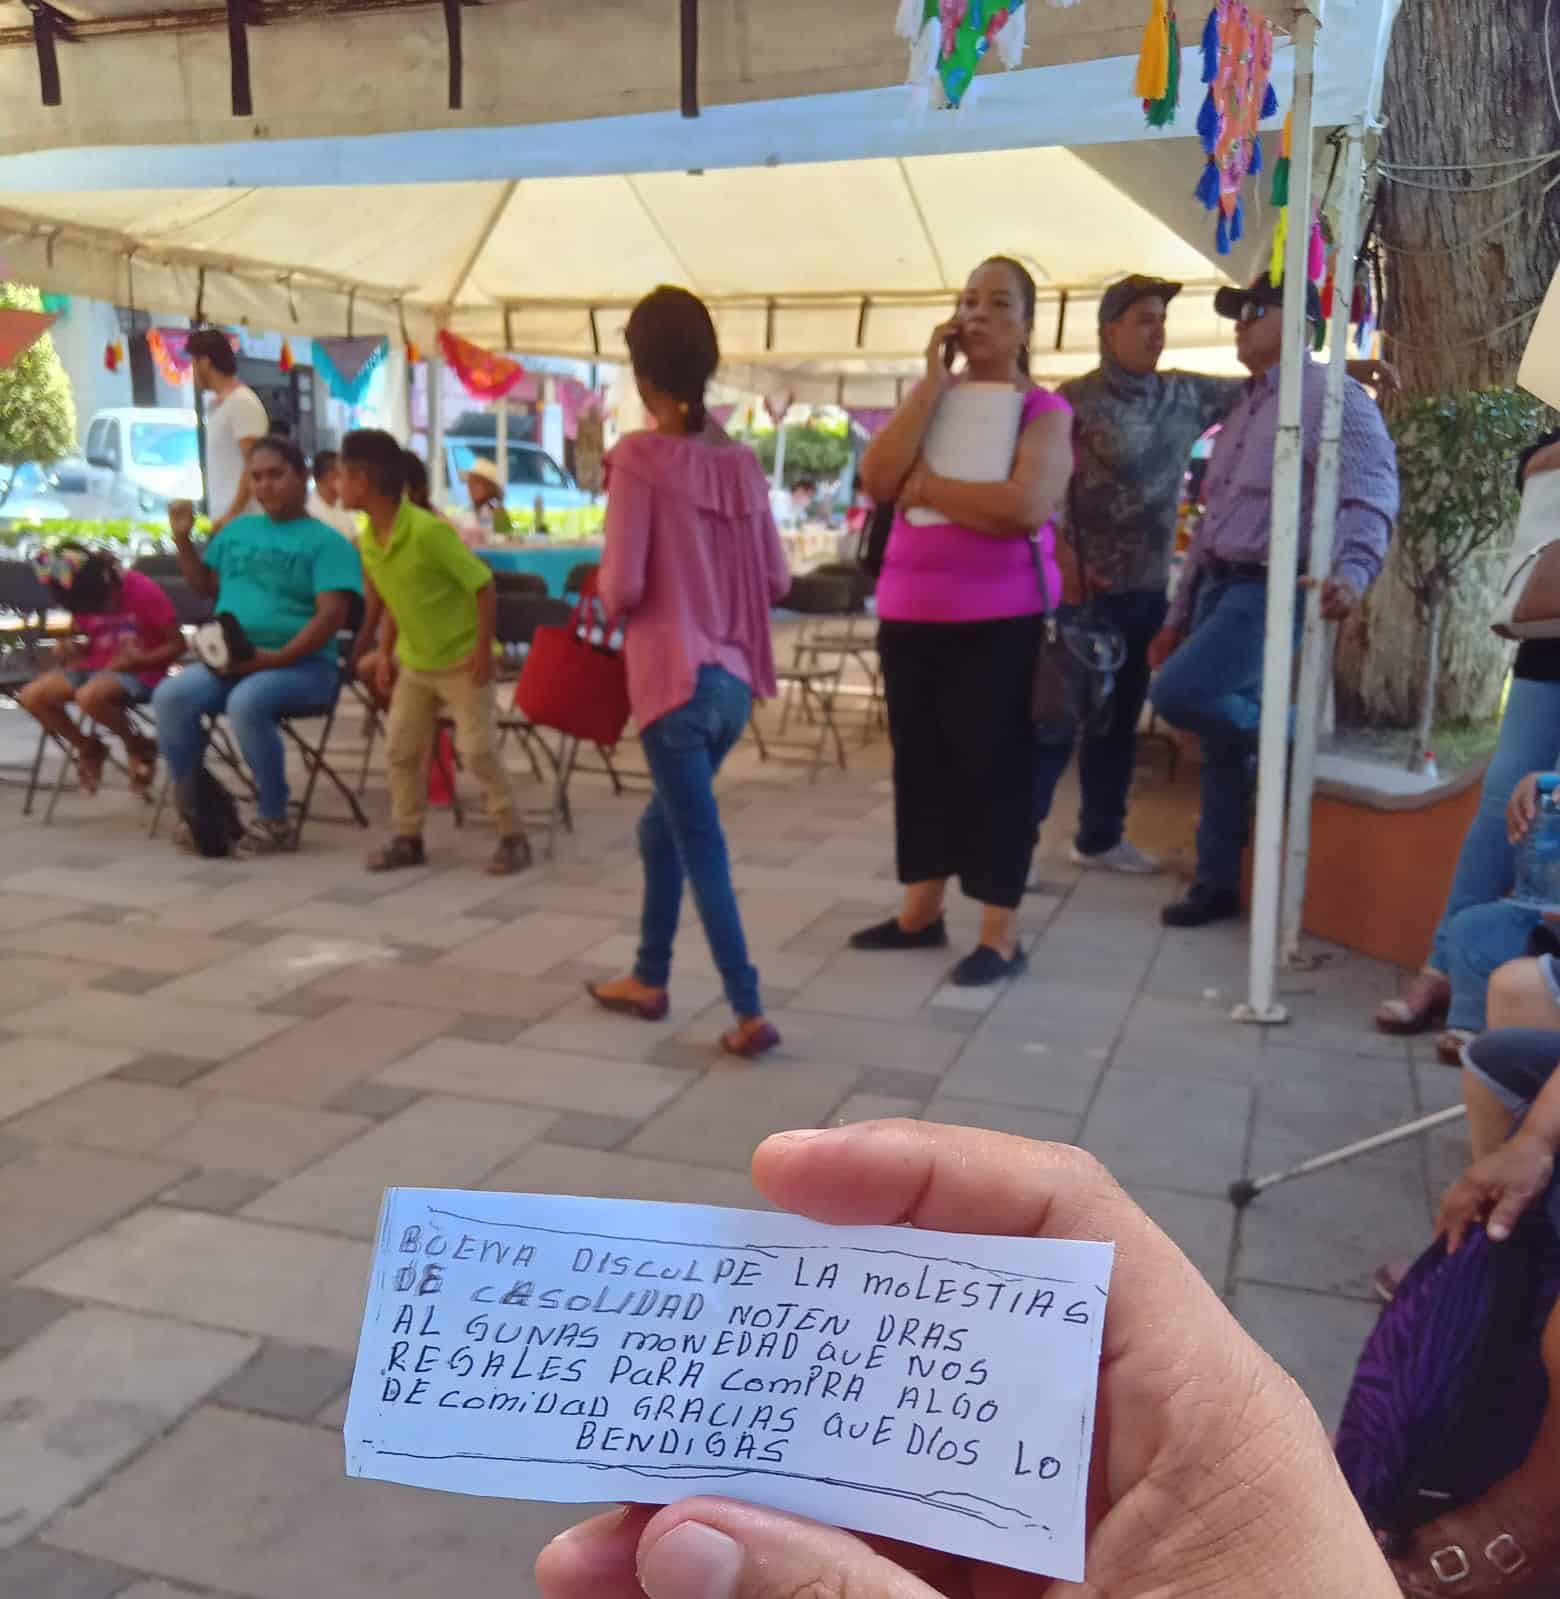 BUENA DISCULPE LA MOLESTIAS
DE CASOLIDAD NOTEN DRAS
AL GUNAS MONEDAD QUE NOS
REGALES PARA COMPRA ALGO
DE COMIDAD GRACIAS QUE DIOS LO
BENDIGAS